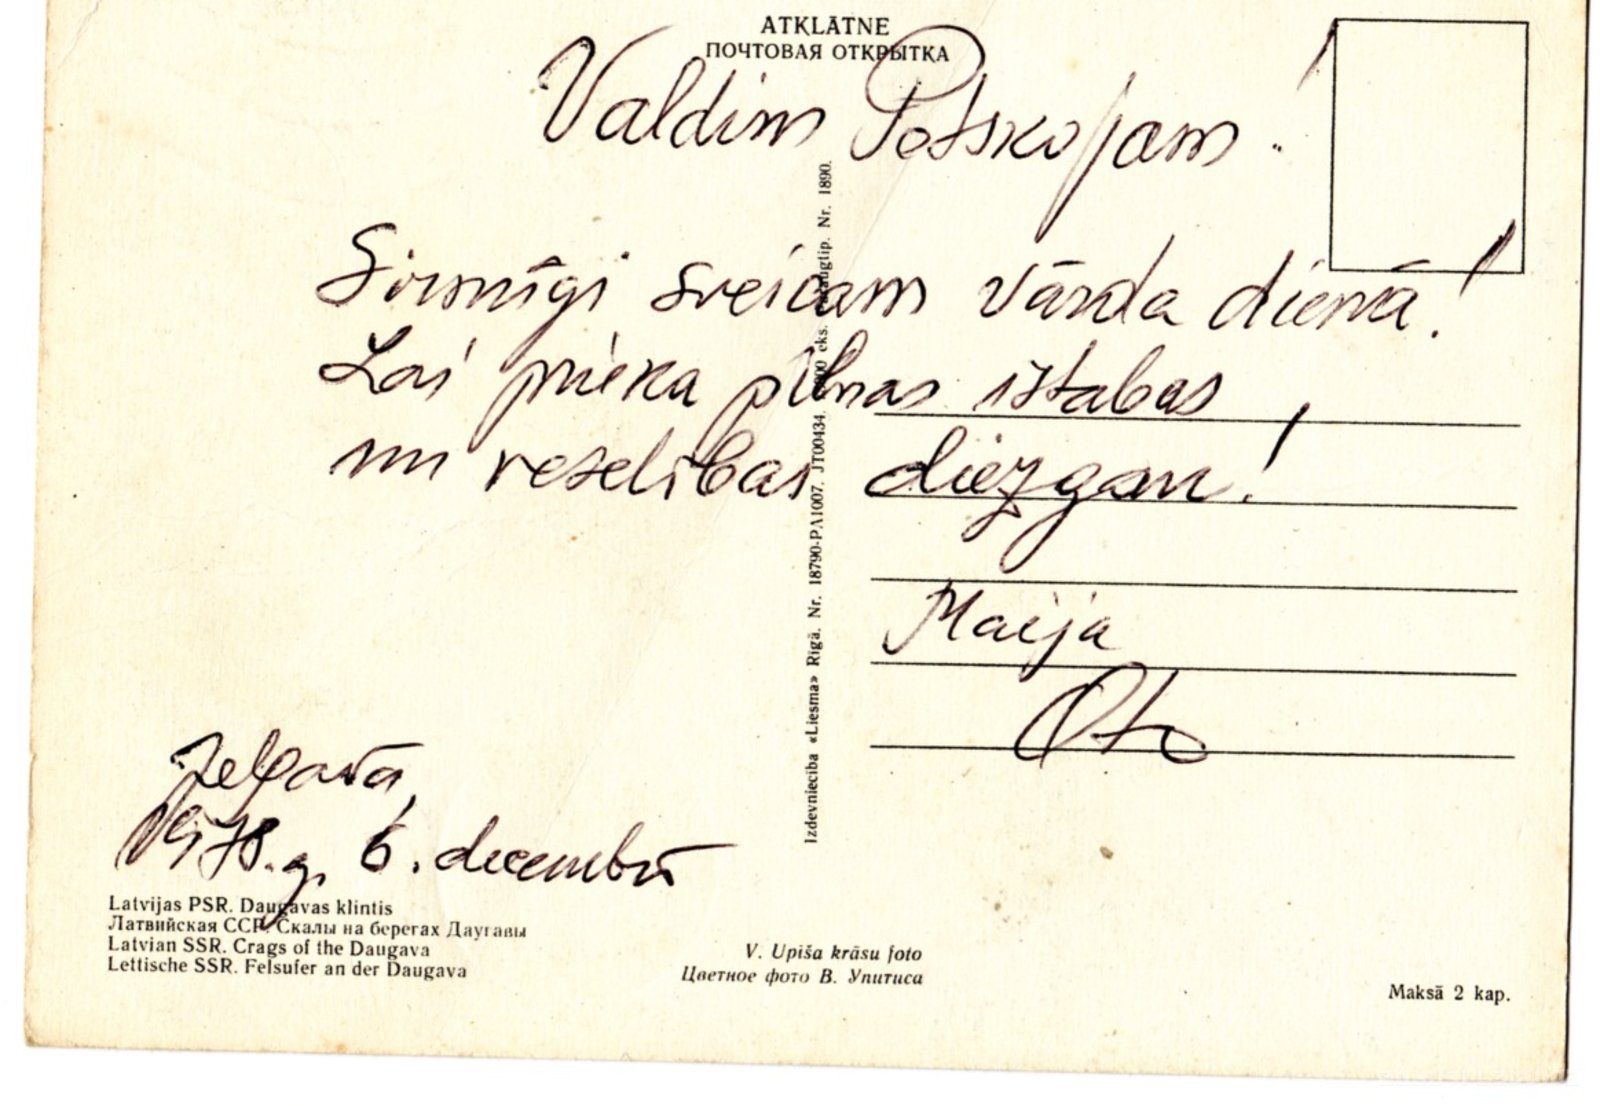 ATKLĀTNE
ПОЧТОВАЯ ОТКРЫТКА
Valdim Petskojam!
Sirsnīgi sveicam vārda dienā!
Lai prieka pilnas istabas,
un veselības diezgan!
Maija
Oto
Jelgavā,
1978.g. 6. decembrī
Izdevniecība «Liesma» Rīgā. Nr. 18790-PA1007. JT00434. eks. Nr. 1890.
Latvijas PSR. Daugavas klintis
Латвийская ССР. Скалы на берегах Даугавы
Latvian SSR. Crags of the Daugava
Lettische SSR. Felsufer an der Daugava
V. Upīša krāsu foto
Цветное фото В. Упитиса
Maksā 2 kap.